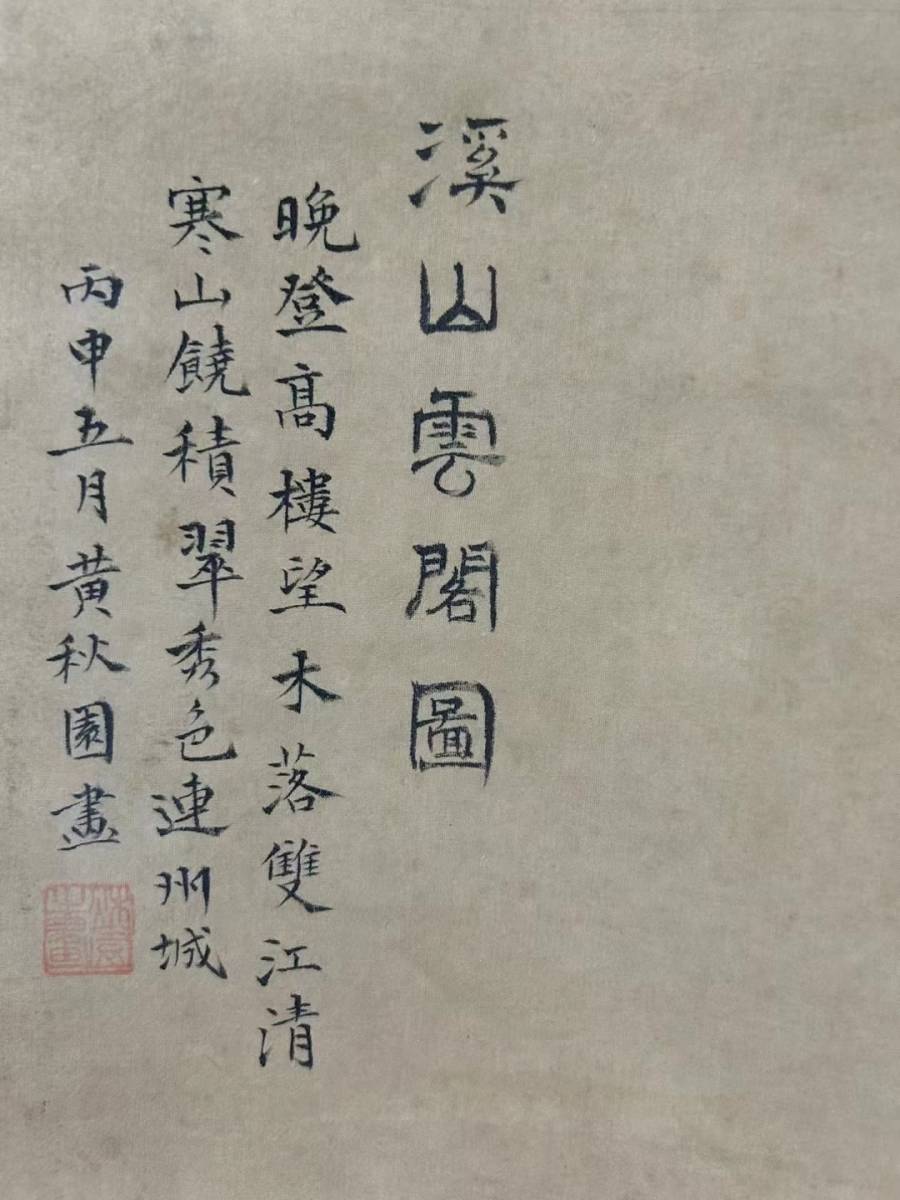 溪山雲閣圖
晚登高樓望木落雙江清
寒山饒積翠秀色連州城
丙申五月黃秋園畫